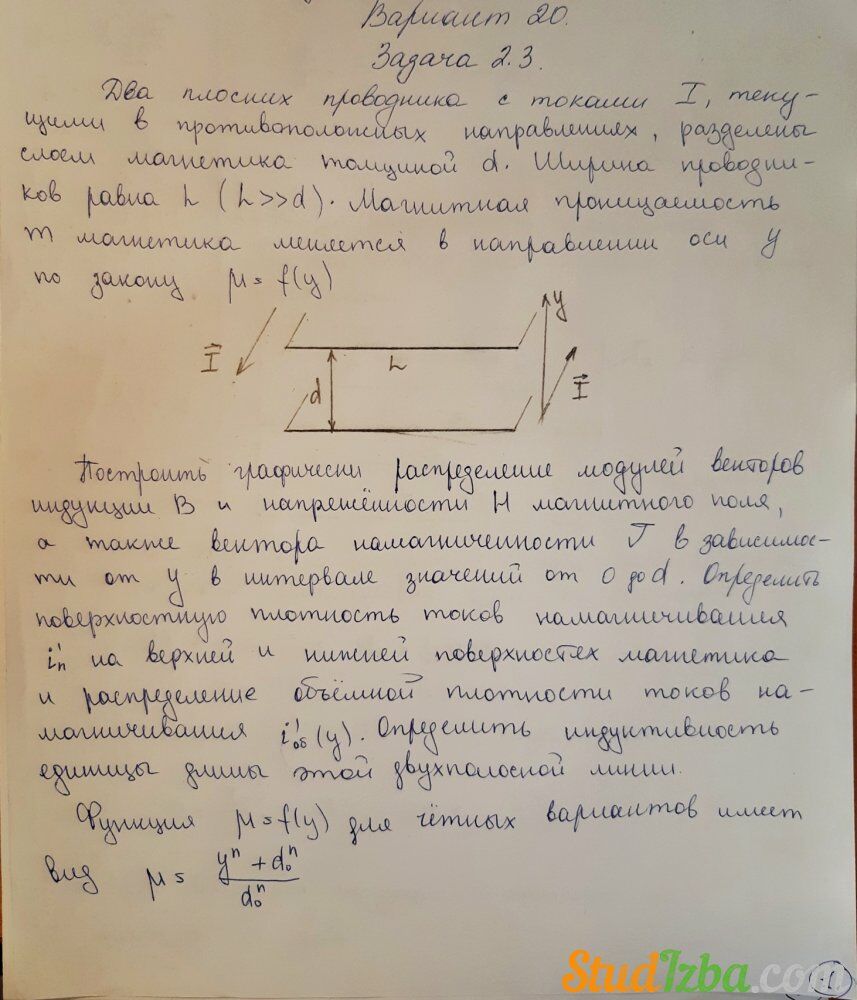 Вариант 20.
Задача 2.3.
Два плоских проводника с токами I, теку-
щими в противоположных направлениях, разделены
слоем магнетика толщиной d. Ширина проводни-
ков равна L (L>>d). Магнитная проницаемость
m магнетика меняется в направлении оси y
по закону μ = f(y)
I
L
d
y
I
Построить графически распределение модулей векторов
индукции B и напряжённости H магнитного поля,
а также вектора намагниченности J в зависимос-
ти от y в интервале значений от 0 до d. Определить
поверхностную плотность токов намагничивания
i'п на верхней и нижней поверхностях магнетика
и распределение объёмной плотности токов на-
магничивания i'об (y). Определить индуктивность
единицы длины этой двухполосной линии.
Функция μ = f(y) для чётных вариантов имеет
вид μ = (y^n + d₀^n) / d₀^n
StudIzba.com